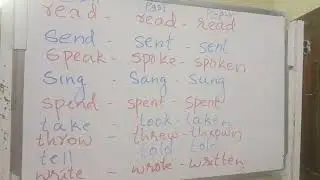 Past
read - read - read
Send - sent - sent
Speak - spoke - spoken
Sing - Sang - Sung
spend - spent - spent
take - took - taken
throw - threw - thrown
tell told told
write - wrote - written